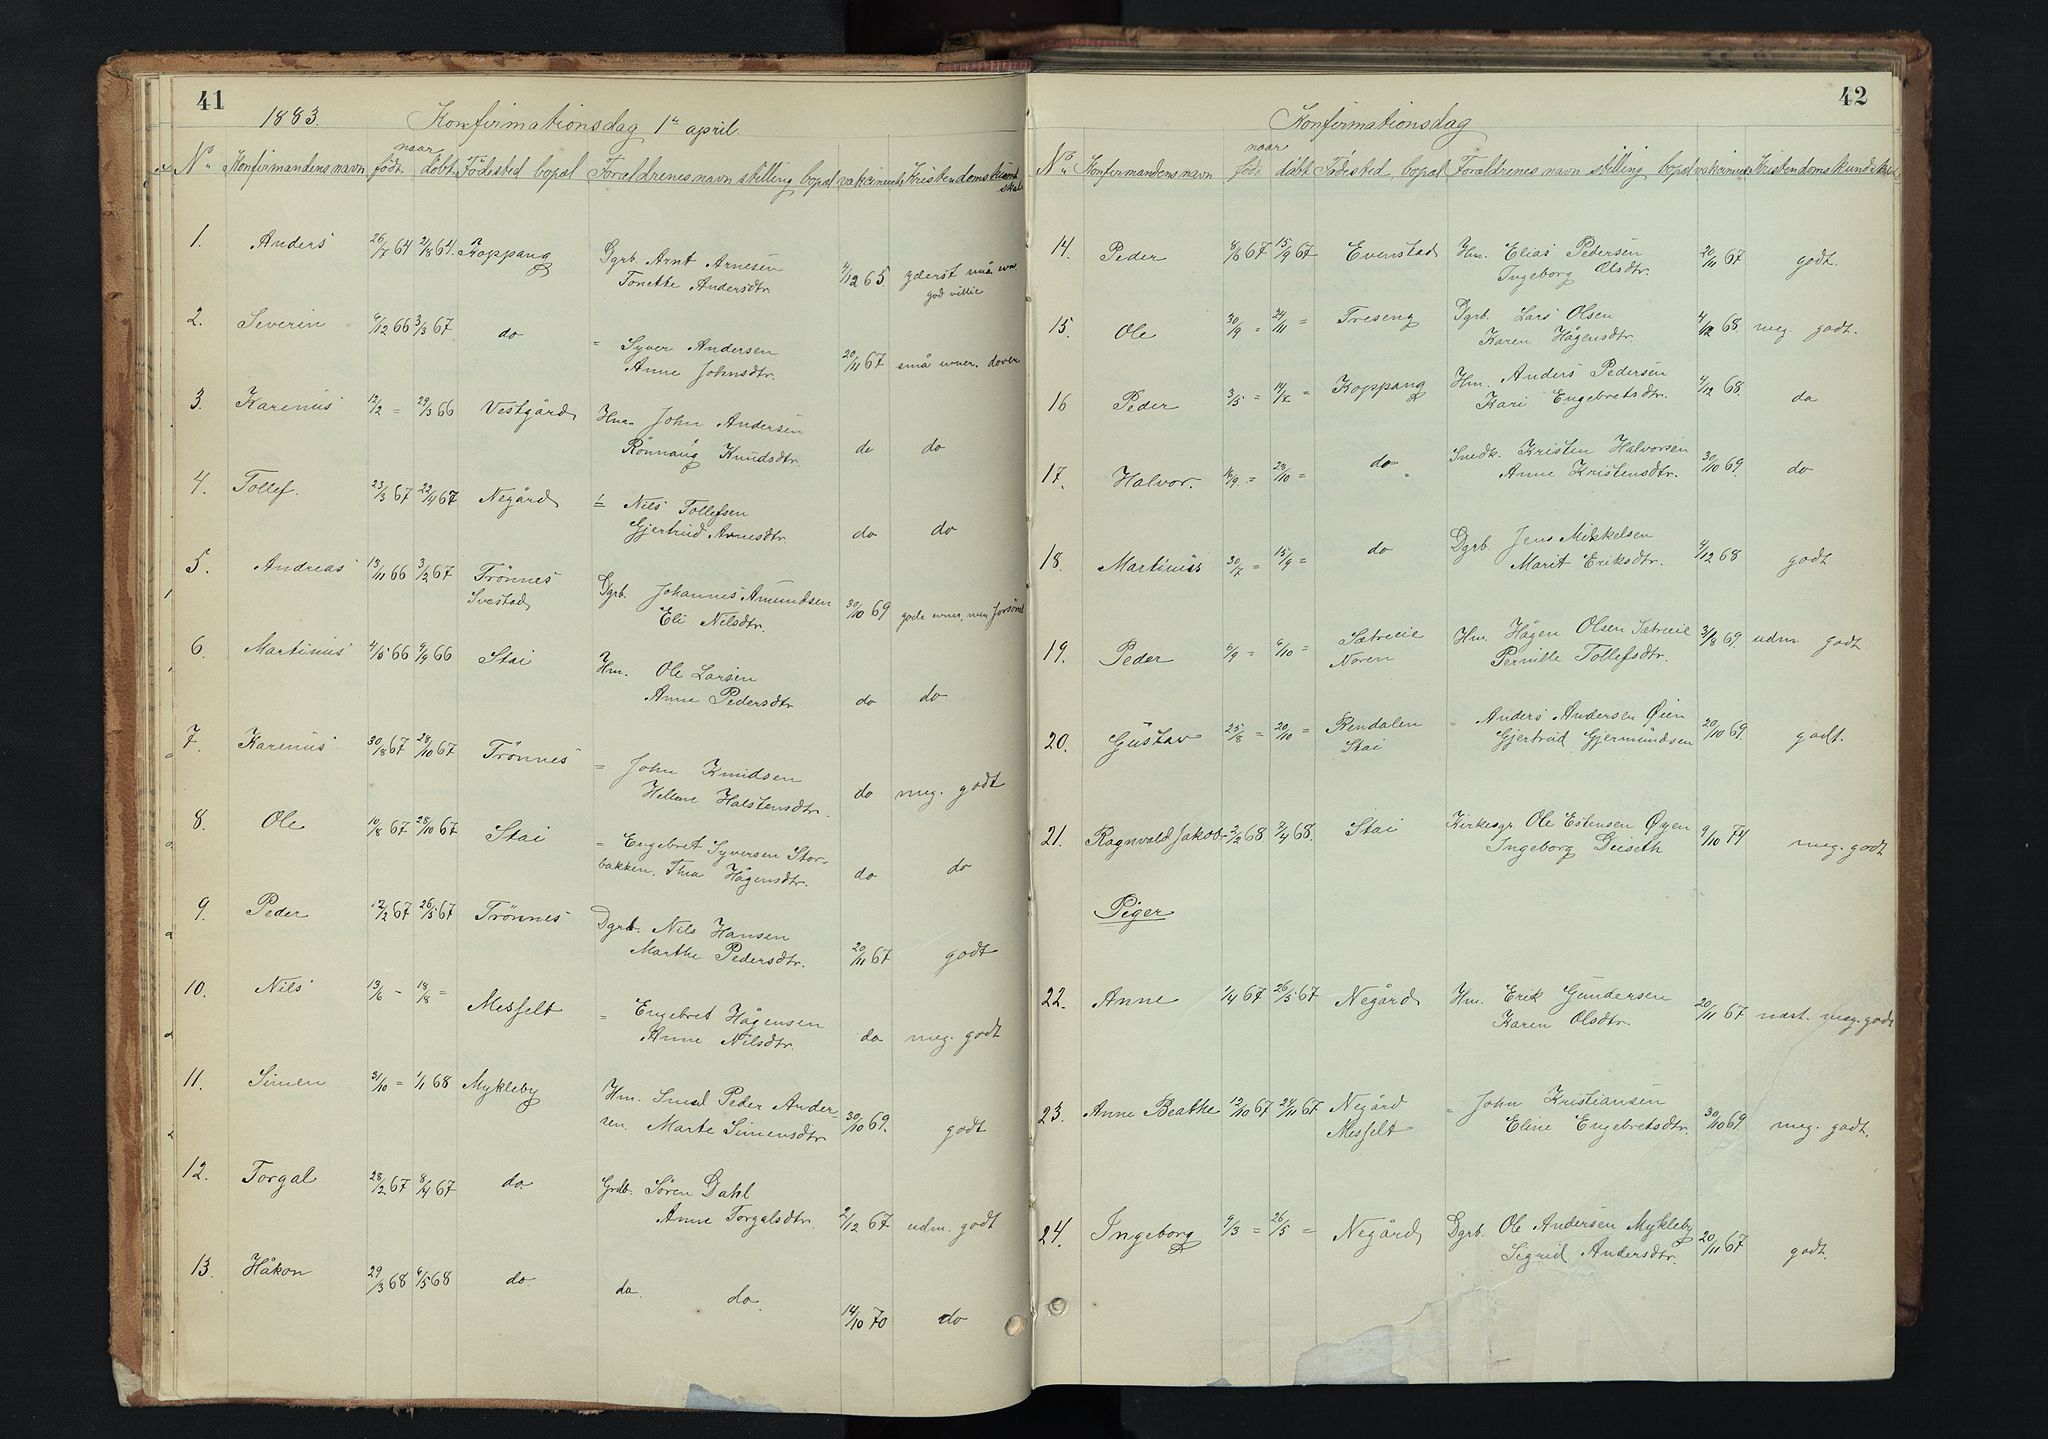 41
1883. Konfirmationsdag 1ste april.
naar
No Konfirmandens navn født. døbt Fødested bopæl Forældrenes navn stilling bopæl vaksineret Kristendomskundskab
1. Anders 26/7 64 2/8 64. Koppang Dgrb. Arnt Arnesen
Tonette Andersdtr. 4/12 65. yderst små evn
god villie
2. Severin 6/12 66 3/3 67 do = Syver Andersen
Anne Johnsdtr. 20/11 67 små evner. doven
3. Karenus 12/2 = 29/3 66 Vestgård John Andersen
Rønnaug Knudsdtr. do do
4. Tollef. 23/3 67 22/4 67 Negård = Nils Tollefsen
Gjertrud Arnesdtr. do do
5. Andreas 13/11 66 3/2 67 Trønnes
Svestad Dgrb. Johannes Amundsen
Eli Nilsdtr. 30/10 69 gode evner, men forsømt
6. Martinus 4/5 66 9/9 66 Stai Hm. Ole Larsen
Anne Pedersdtr do do
7. Karenus 30/8 67 28/10 67 Trønnes = John Knudsen
Hellene Halstensdtr. do meg. godt
8. Ole 10/8 67 28/10 67 Stai = Engebret Syversen Stor-
bakken. Thea Hågensdtr. do do
9. Peder 12/2 67 26/5 67 Trønnes Dgrb. Nils Hansen
Marthe Pedersdtr. 20/11 67 godt
10. Nils 13/6 - 18/8 = Messelt = Engebret Hågensen
Anne Nilsdtr. do meg. godt
11. Simen 31/10 = 1/1 68 Mykleby Hm. Smed Peder Ander-
sen. Marte Simensdtr 30/10 69. godt
12. Torgal 28/2 67 8/4 67 do. Grdb. Søren Dahl
Anne Torgalsdtr. 2/12 67 udm. godt
13. Håkon 29/3 68 6/5 68 do. do. do. 14/10 70 do
42
Konfirmationsdag
naar
No Konfirmandens navn født døbt Fødested, bopæl Forældrenes navn stilling bopæl vaksineret Kristendomskundskab
14. Peder 8/6 67 15/9 67 Evenstad Hm. Elias Pedersen
Ingeborg Olsdtr. 20/11 67 godt.
15. Ole 30/9 = 24/11 = Treseng Dgrb. Lars Olsen
Karen Hågensdtr. 4/12 68. meg. godt.
16 Peder 3/5 = 14/7 = Koppang Hm. Anders Pedersen
Kari Engebretsdtr. 4/12 68. do
17. Halvor. = 28/10 = do Snedk. Kristen Halvorsen
Anne Kristensdtr. 30/10 69. do
18. Martinus 30/7 = 15/9 = do Dgrb. Jens Mikkelsen
Marit Eriksdtr. 4/12 68 godt
19. Peder 6/9 = 6/10 = Sætreeie
Noren Hm. Hågen Olsen Sætreeie
Pernille Tollefsdtr. 31/8 69. udm. godt
20. Gustav 25/8 = 20/10 = Rendalen
Stai = Anders Andersen Øien
Gjertrud Gjermundsen 20/10 69. godt.
21. Ragnvald Jakob 2/2 68. 2/4 68. Stai Kirkesgr. Ole Estensen Øyen
Ingeborg Deiseth 9/10 74 meg. godt
Piger
22. Anne 1/4 67 26/5 67 Negård Hm. Erik Gundersen
Karen Olsdtr. 20/11 67 næst. meg. godt
23. Anne Beathe 12/10 67 24/11 67 Negård
Messelt = John Kristiansen
Eline Engebretsdtr. 30/10 69. meg. godt.
24. Ingeborg 9/3 = 26/5 = Negård Dgrb. Ole Andersen Mykleby
Sigrid Andersdtr. 20/11 67 godt.